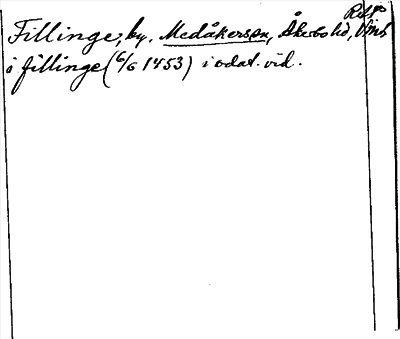 RAP
Fillinge, by. Medåkers sn, Åkerbo hd, Vml
i fillinge (6/6 1453) i odat. vid.